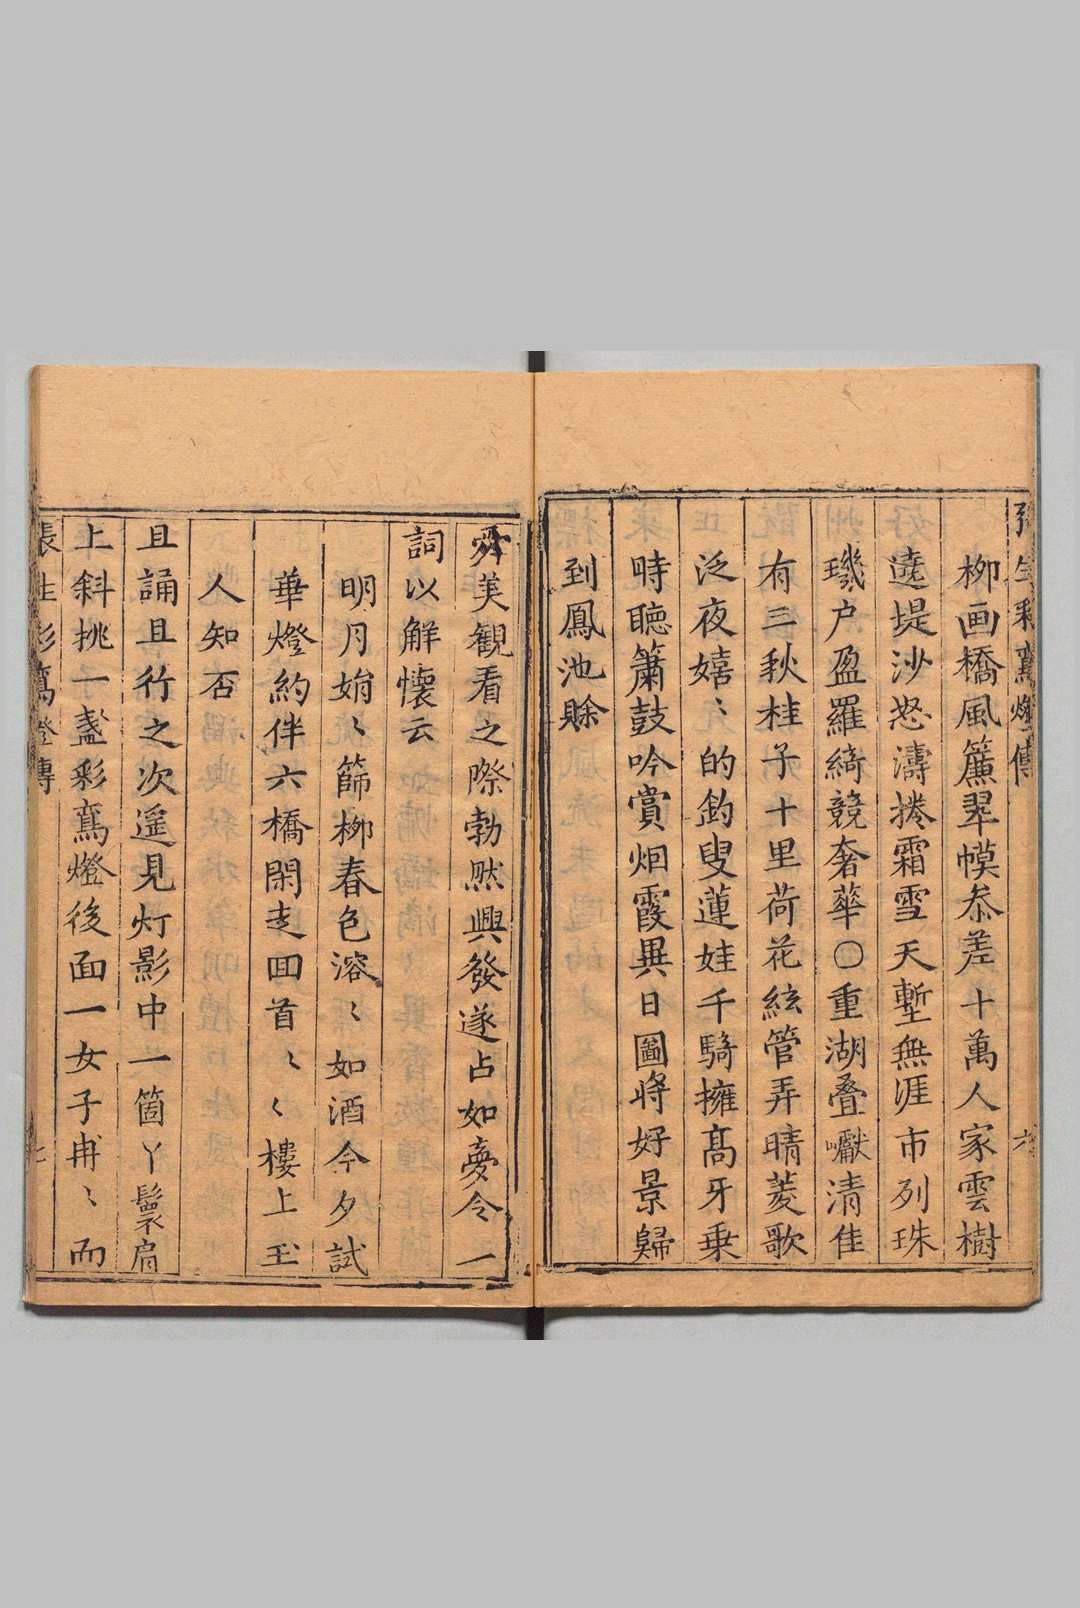 張生彩鸞燈傳 六
柳画橋風簾翠幙叅差十萬人家雲樹
遶堤沙怒濤捲霜雪天塹無涯市列珠
璣户盈羅綺競奢華〇重湖叠巘清佳
有三秋桂子十里荷花絃管弄晴菱歌
泛夜嬉〻的釣叟蓮娃千騎擁髙牙乗
時聽簫鼓吟賞烟霞異日圖將好景歸
到鳳池賖
舜美觀看之際勃然興發遂占如夢令一
詞以解懷云
明月娟〻篩柳春色溶〻如酒今夕試
華燈約伴六橋閑走回首〻〻樓上玉
人知否
且誦且行之次遥見灯影中一箇丫鬟肩
上斜挑一盞彩鸞燈後面一女子冉〻而
張生彩鸞燈傳 七